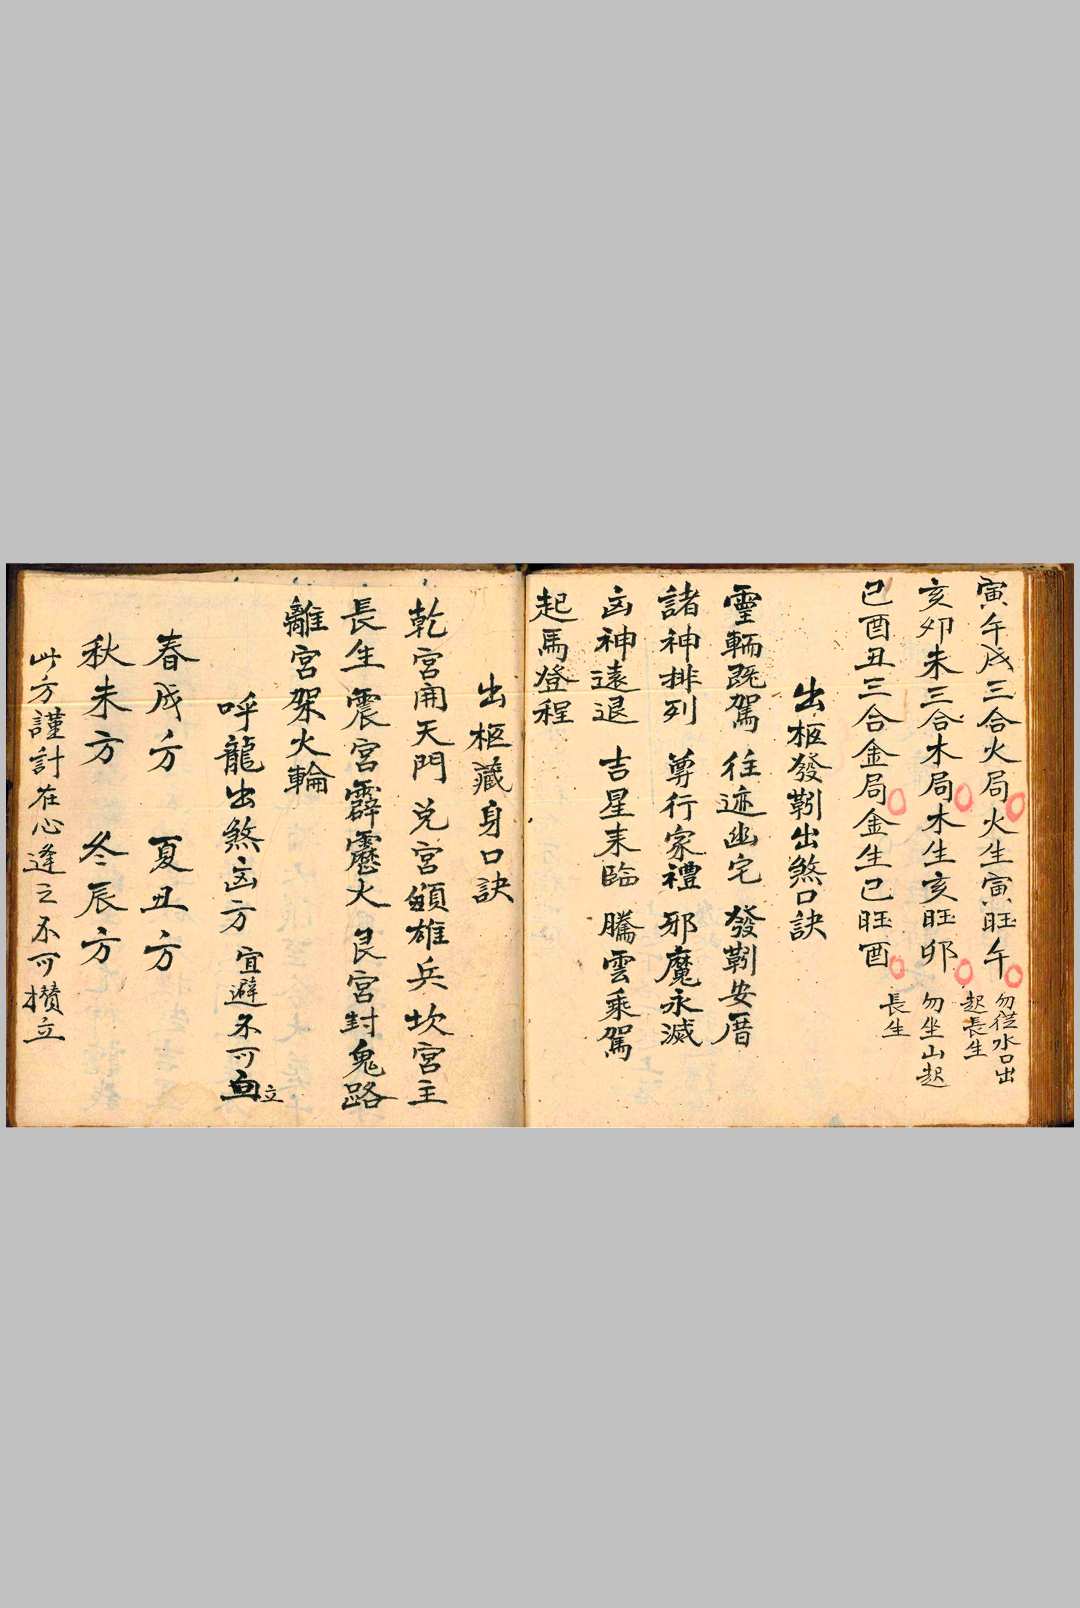 寅午戌三合火局火生寅旺午 勿從水口出
起長生
亥卯未三合木局木生亥旺卯 勿坐山起
巳酉丑三合金局金生巳旺酉 長生
出柩發靷出煞口訣
靈輀既駕 往迹幽宅 發靷安厝
諸神排列 尊行家禮 邪魔永滅
凶神遠退 吉星来臨 騰雲乘駕
起馬登程
出柩藏身口訣
乾宮開天門 兌宮領雄兵 坎宮主
長生 震宮霹靂火 艮宮封鬼路
離宮架火輪
呼龍出煞凶方 宜避不可立
春戌方 夏丑方
秋未方 冬辰方
此方謹計在心逢之不可攢立